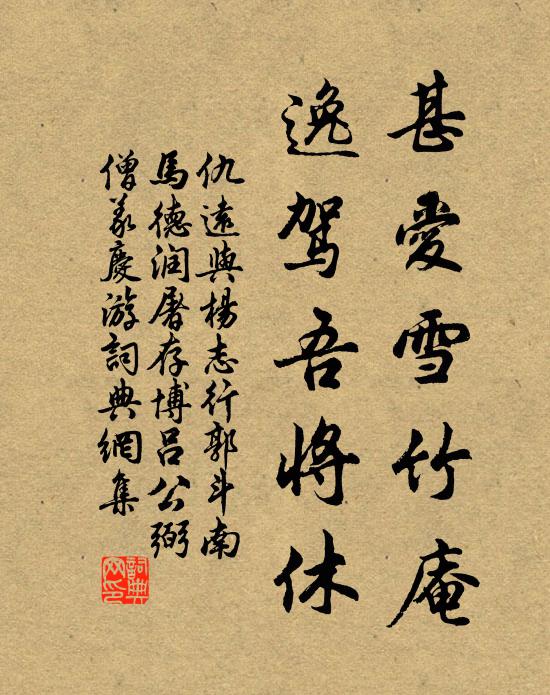 甚愛雪竹庵
逸駕吾將休
仇遠與楊志行郭斗南
馬德润屠存博吕公弼
僧義慶游詞典網集
詞典网印